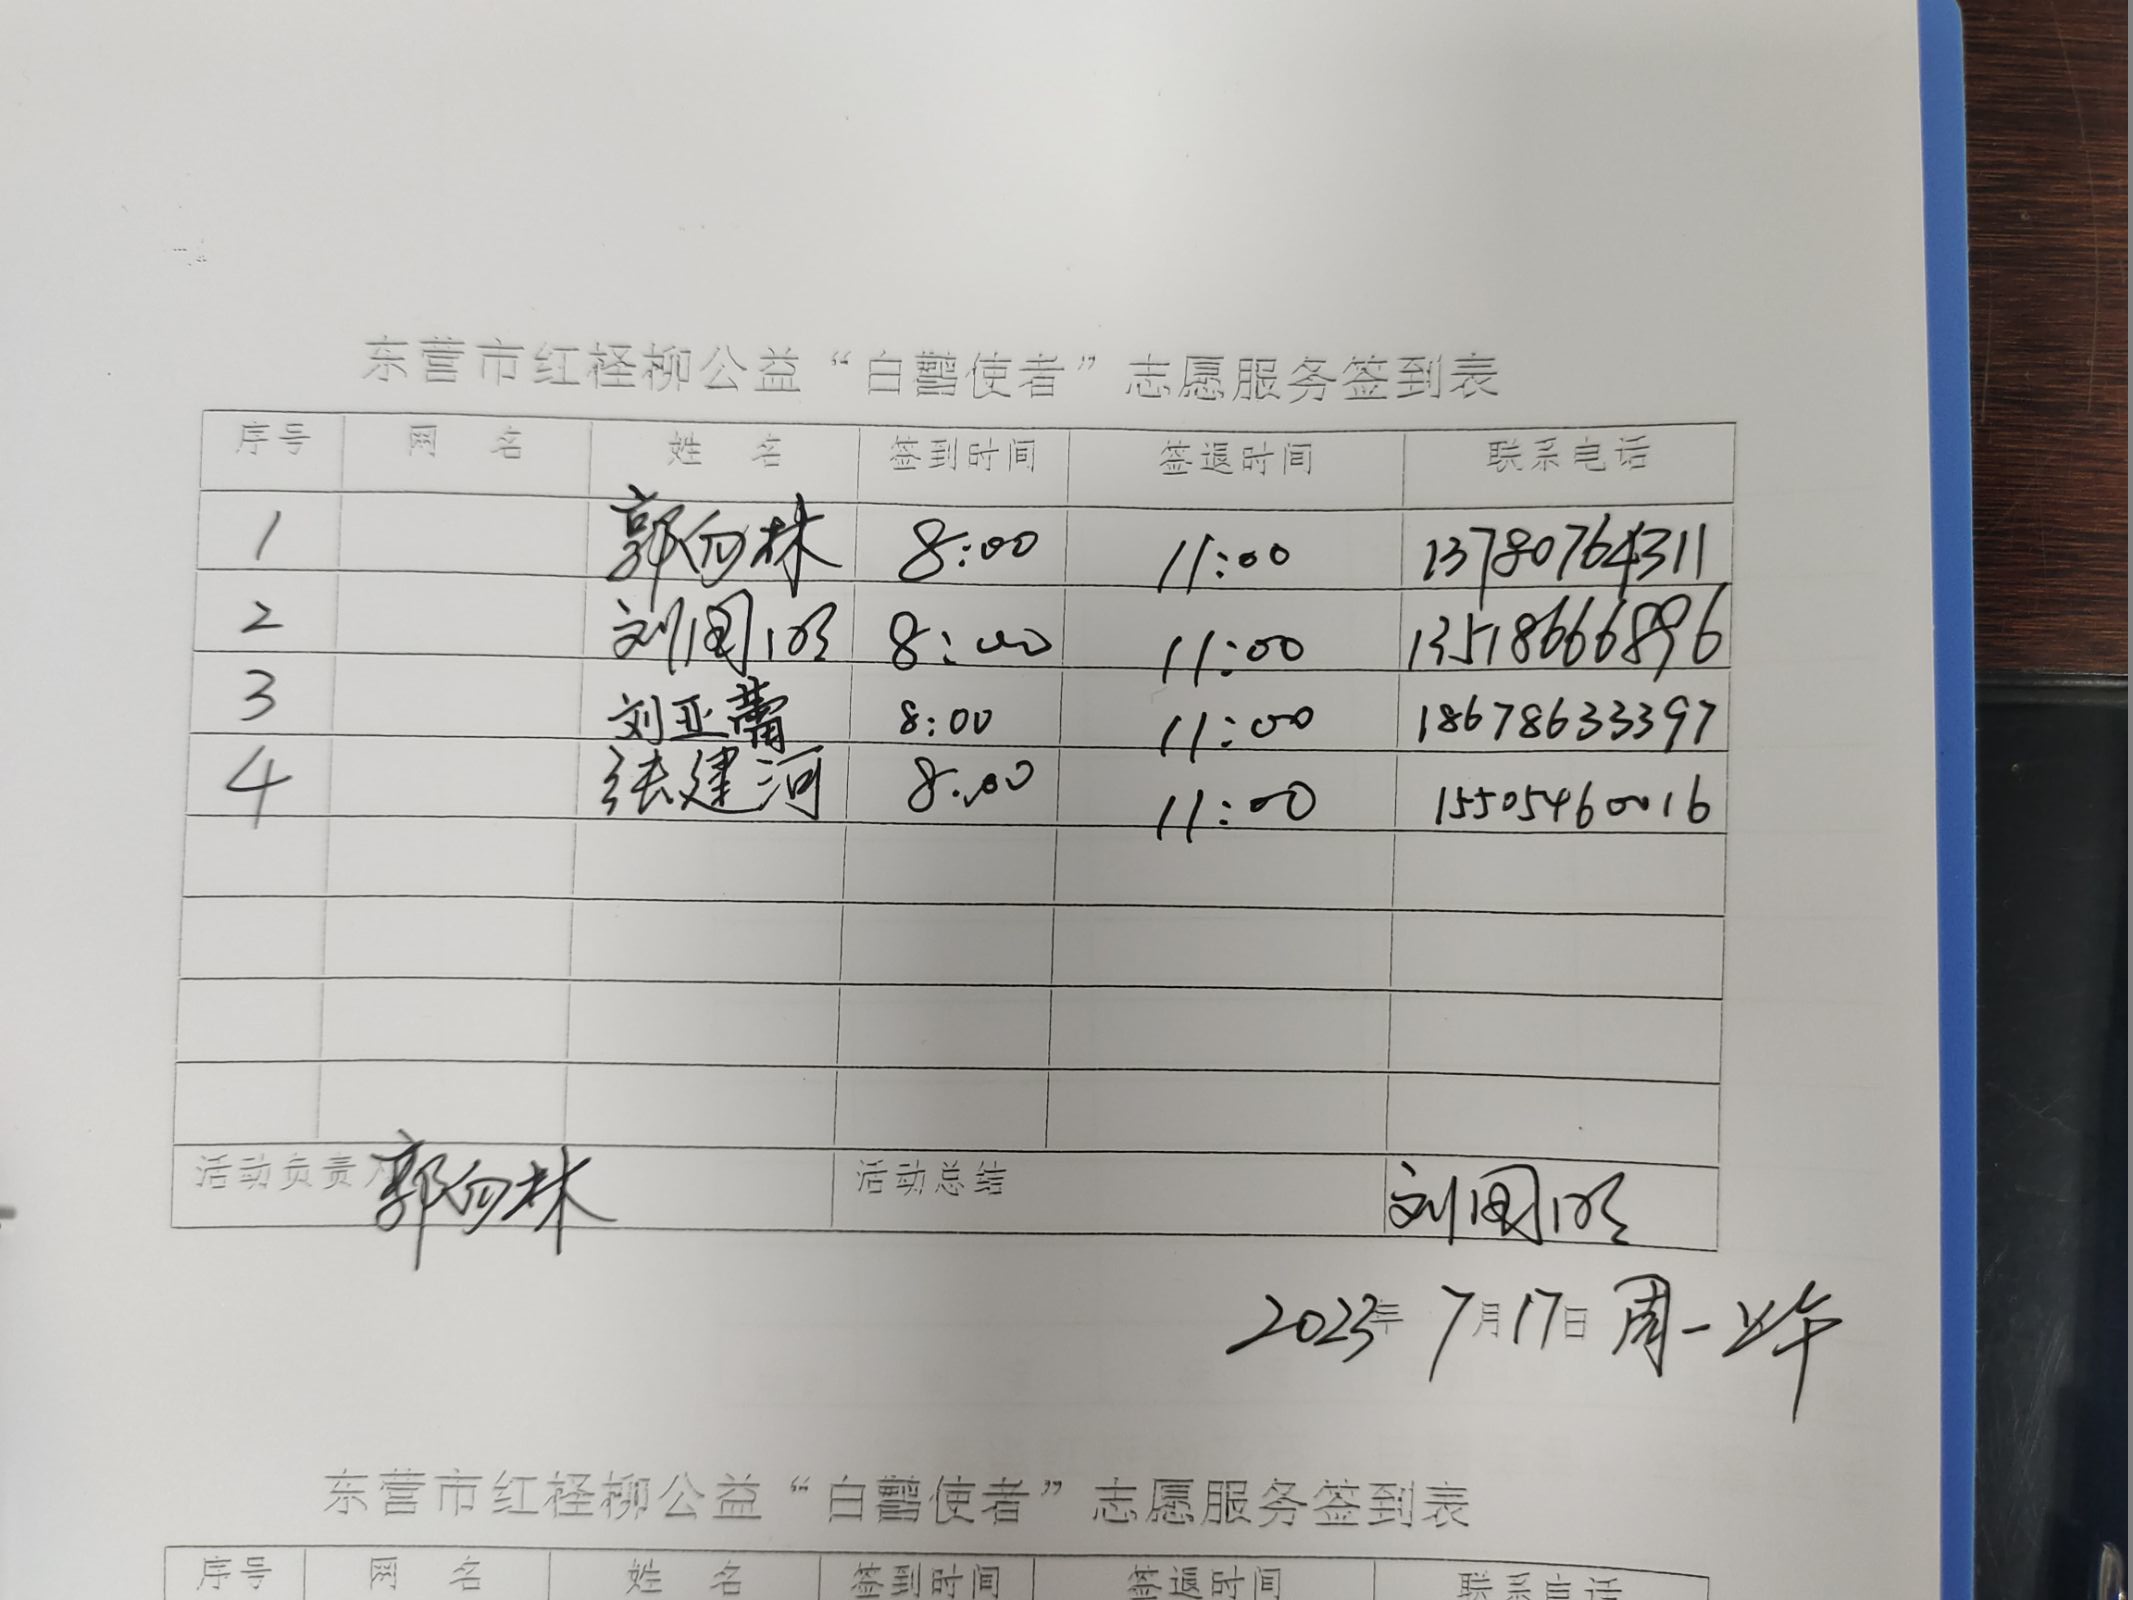 东营市红柽柳公益“白鹳使者”志愿服务签到表
序号 网 名 姓 名 签到时间 签退时间 联系电话
1 郭向林 8:00 11:00 13780764311
2 刘国明 8:00 11:00 13518666896
3 刘亚蕾 8:00 11:00 18678633397
4 张建河 8:00 11:00 15505460016
活动负责人 郭向林 活动总结 刘国明
2023年 7月17日 周一上午
东营市红柽柳公益“白鹳使者”志愿服务签到表
序号 网 名 姓 名 签到时间 签退时间 联系电话